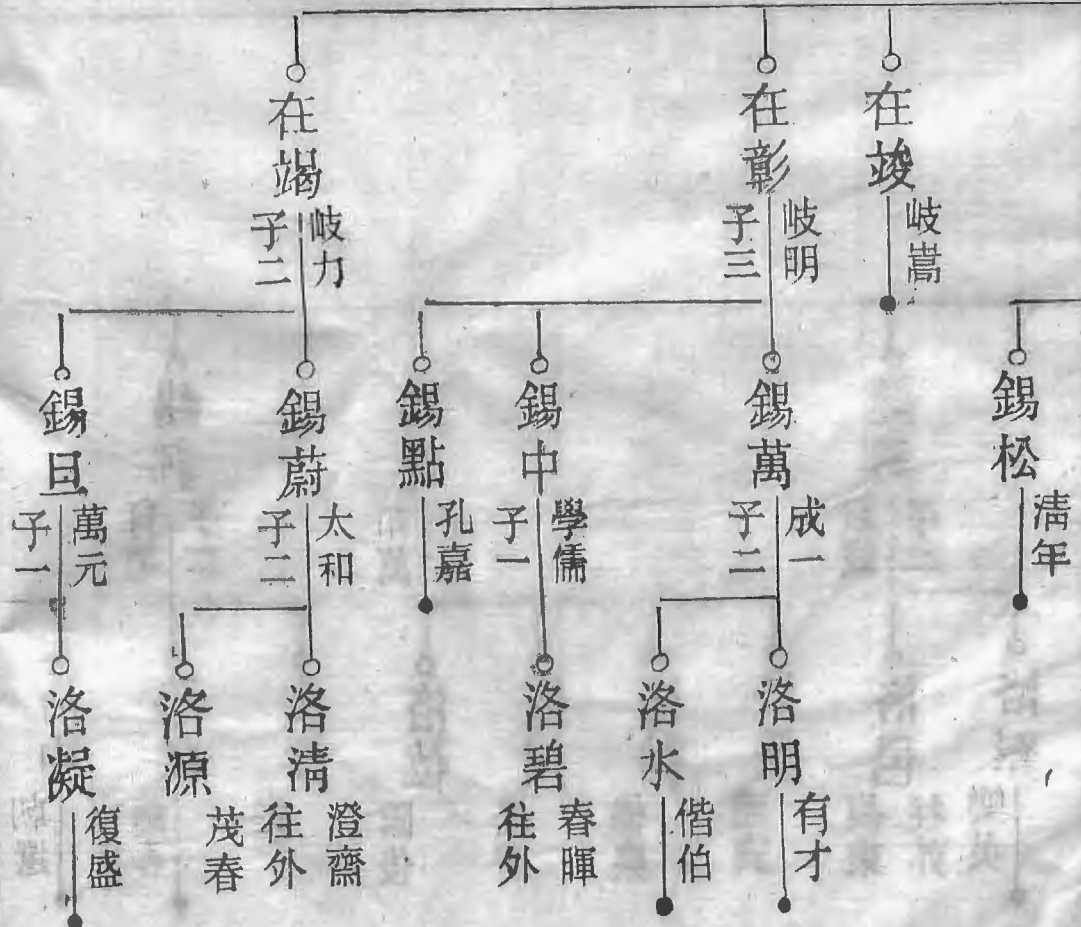 在竣
岐嵩
在彰
岐明
子三
在竭
岐力
子二
錫松
淸年
錫萬
成一
子二
錫中
學儒
子一
錫點
孔嘉
錫蔚
太和
子二
錫旦
萬元
子一
洛明
有才
洛水
偕伯
洛碧
春暉
往外
洛淸
澄齋
往外
洛源
茂春
洛凝
復盛